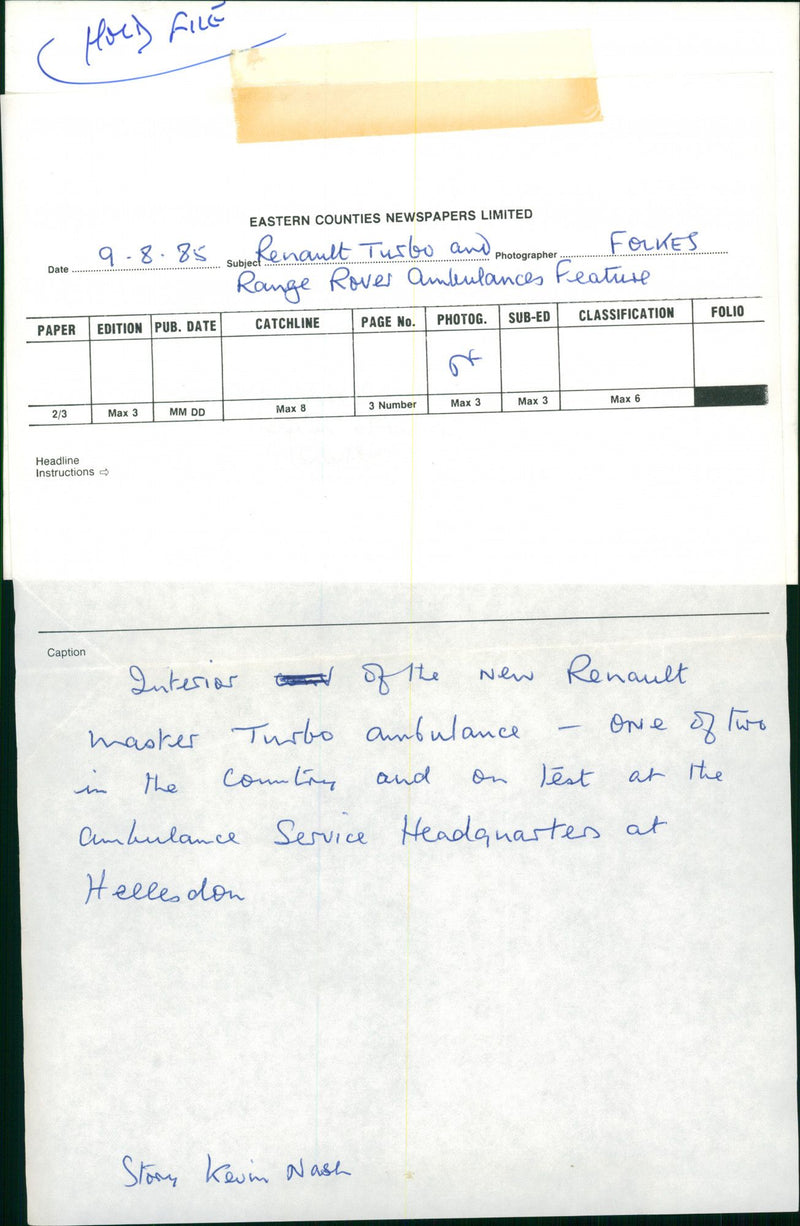 HOLD FILE
EASTERN COUNTIES NEWSPAPERS LIMITED
Date 9 - 8 - 85 Subject Renault Turbo and Photographer FOLKES
Range Rover Ambulances Feature
PAPER EDITION PUB. DATE CATCHLINE PAGE No. PHOTOG. SUB-ED CLASSIFICATION FOLIO
2/3 Max 3 MM DD Max 8 3 Number Max 3 Max 3 Max 6
Headline
Instructions ⇨
Caption
Interior of the new Renault
master Turbo ambulance – one of two
in the country and on test at the
ambulance Service Headquarters at
Hellesdon
Story Kevin Nash